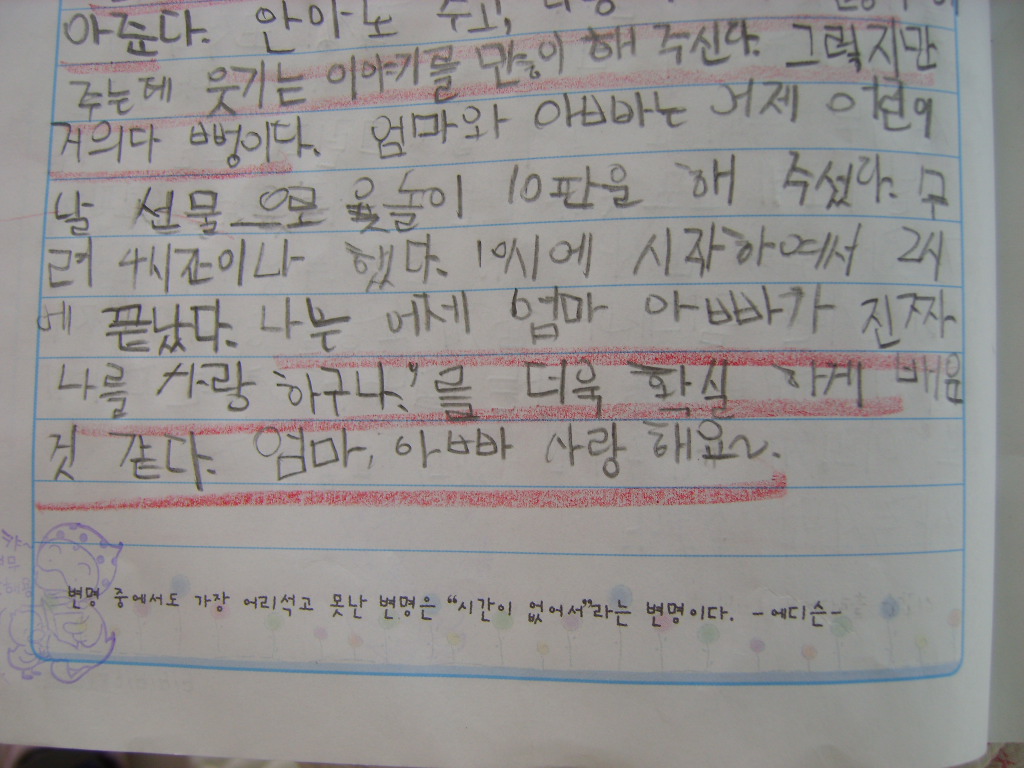 아준다. 안아도 주고,
주는데 웃기는 이야기를 만이 해 주신다. 그럭지만
거의다 뻥이다. 엄마와 아빠는 어제 어린이
날 선물으로 윷놀이 10판을 해 주셨다. 무
려 4시간이나 했다. 10시에 시작하여서 2시
에 끝났다. 나는 어제 엄마 아빠가 진짜
나를 사랑 하구나.'를 더욱 확실 하게 배운
것 같다. 엄마, 아빠 사랑 해요~.
변명 중에서도 가장 어리석고 못난 변명은 "시간이 없어서"라는 변명이다. -에디슨-